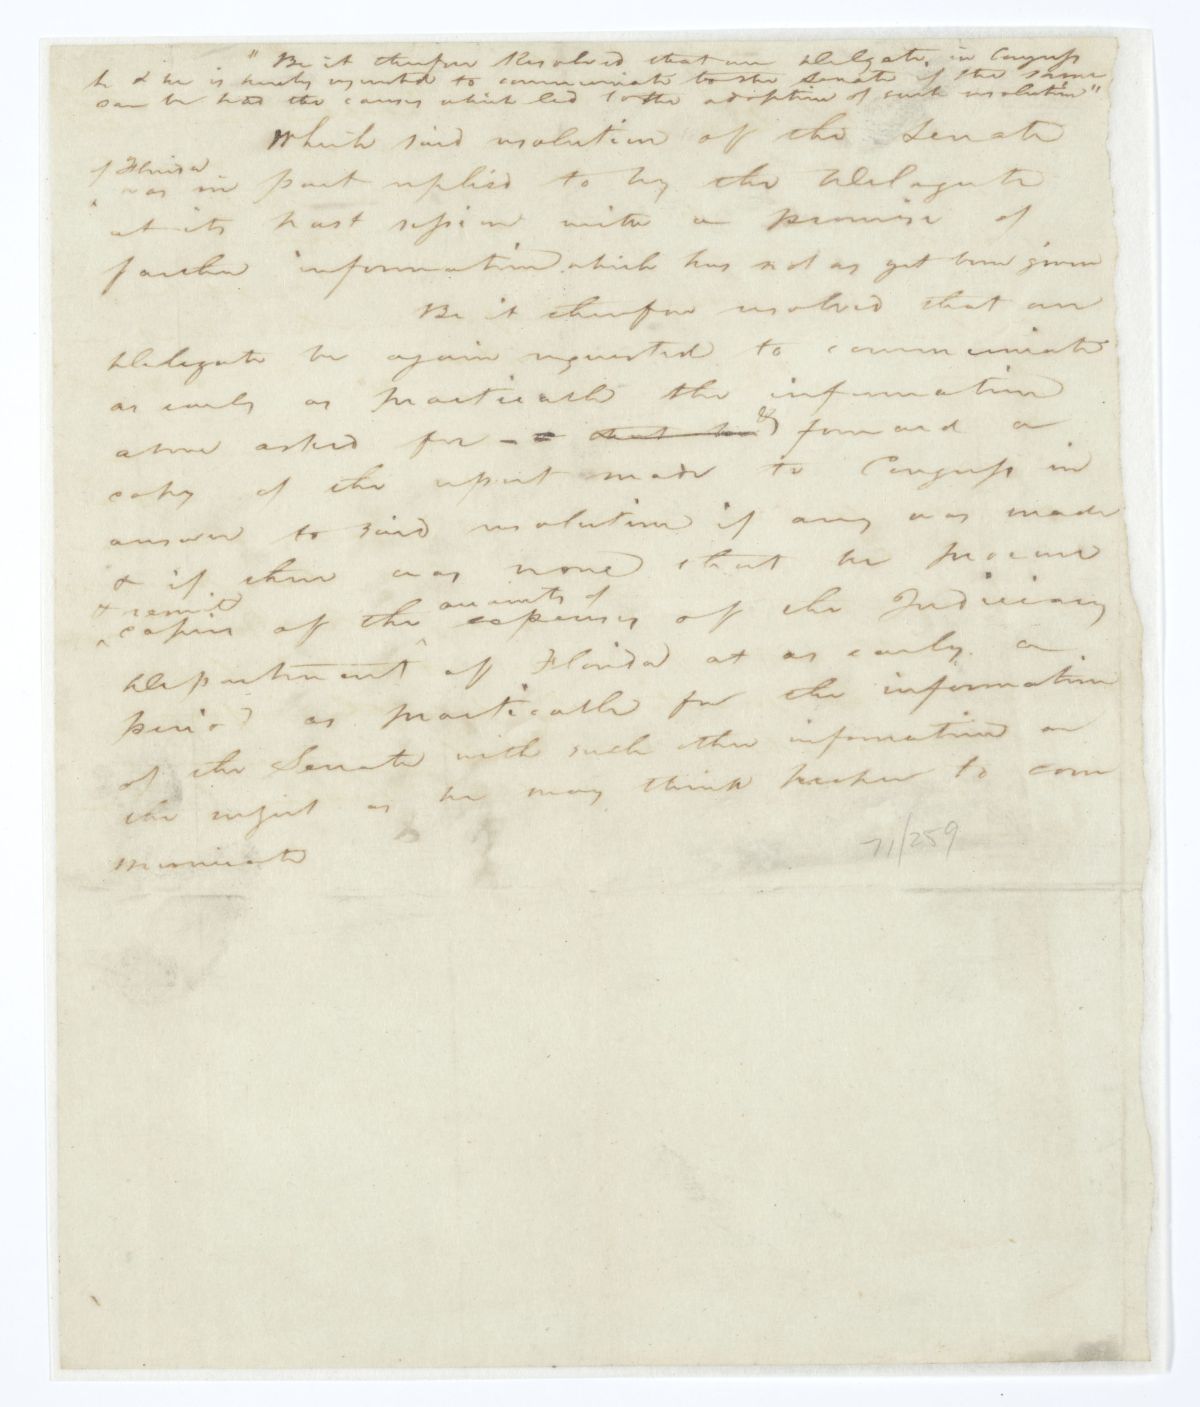 " Be it therefore Resolved that our Delegate, in Congress
be & he is hereby requested to communicate to the Senate if the same
can be had the causes which led to the adoption of such resolution"
Which said resolution of the Senate
of Florida
was in part replied to by the Delegate
at its last session with a promise of
further information which has not as yet been given
Be it therefore resolved that our
Delegate be again requested to communicate
as early as practicable the information
above asked for & forward a
copy of the report made to Congress in
answer to said resolution if any was made
& if there was none that he procure
& remit accounts of
copies of the expenses of the Judiciary
Department of Florida at as early a
period as practicable for the information
of the Senate with such other information on
the subject as he may think proper to com
municate
71/259